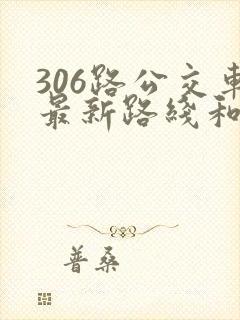 306路公交車
最新路綫和
普桑